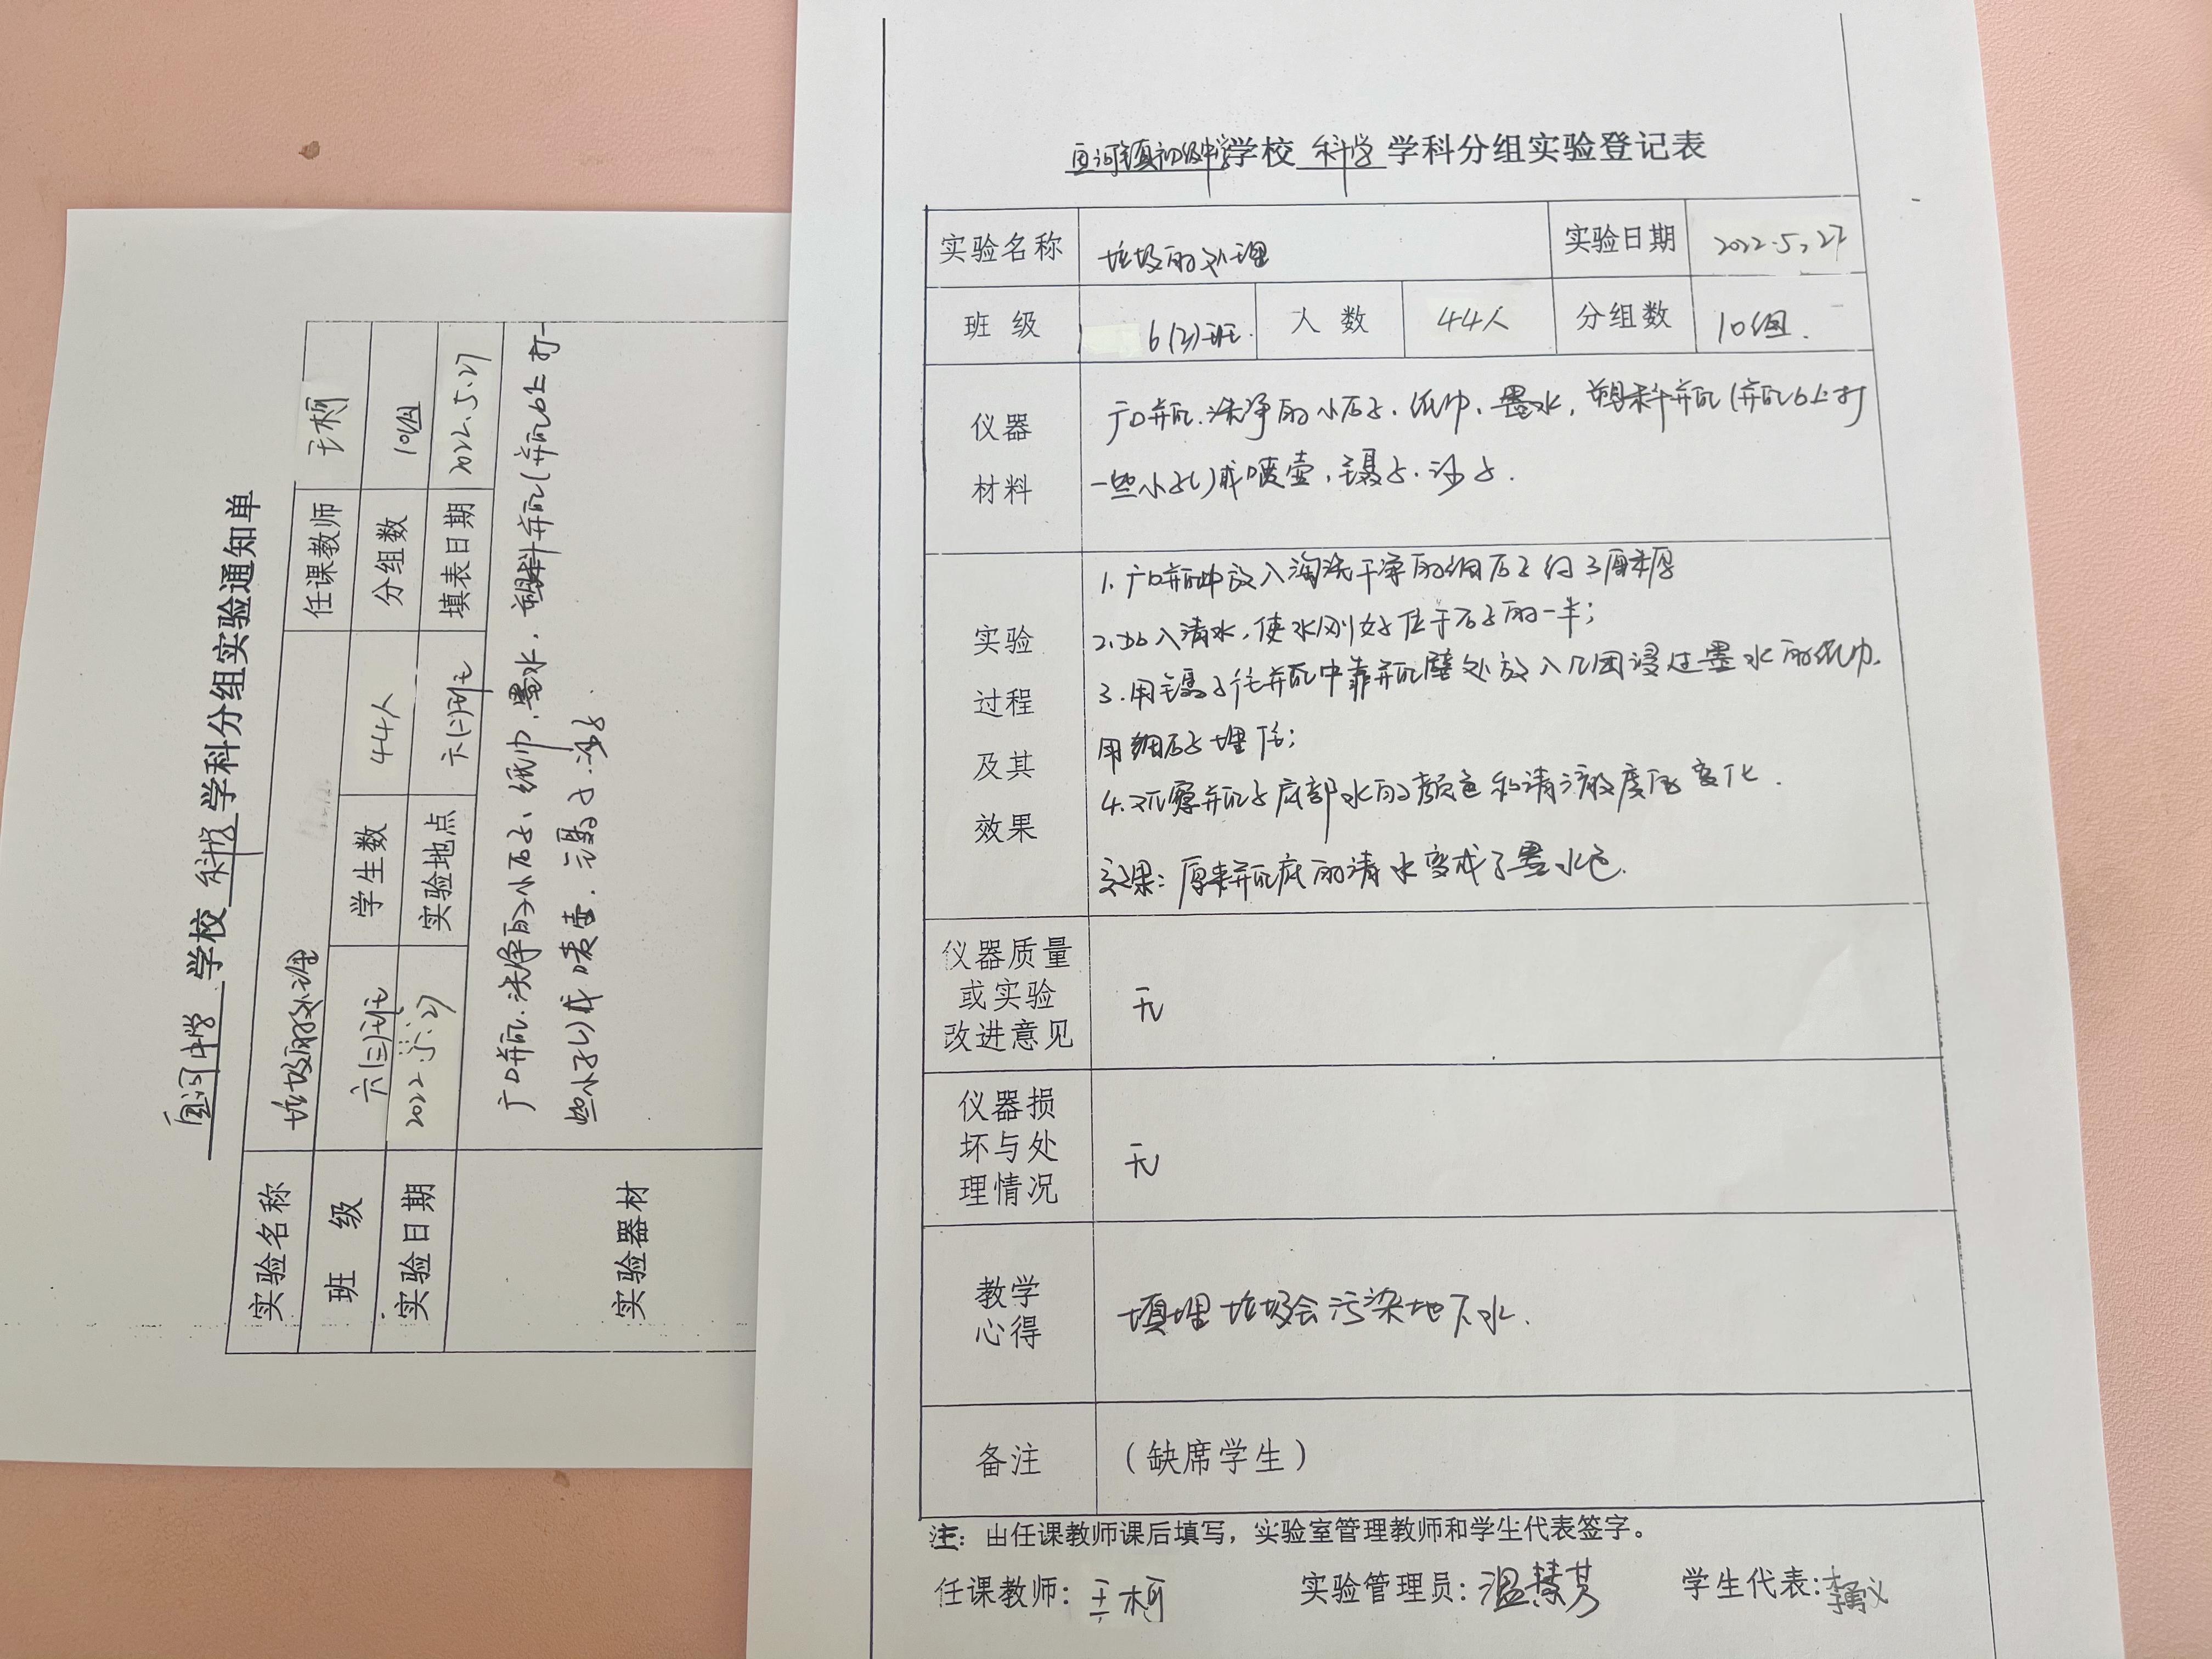 学校 科学 学科分组实验通知单
实验名称 垃圾的处理 任课教师 王柯
班 级 六(三)班 学生数 44人 分组数 10组
实验日期 2022.5.27 实验地点 六(二)班 填表日期 2022.5.27
实验器材
广口瓶.洗净的小石子、纸巾、墨水,塑料瓶(瓶口上打一
些小孔)或喷壶,镊子.沙子.
初级中学学校 科学 学科分组实验登记表
实验名称 垃圾的处理 实验日期 2022.5.27
班 级 6(3)班 人 数 44人 分组数 10组.
仪器
材料
广口瓶.洗净的小石子、纸巾、墨水,塑料瓶(瓶口上打
一些小孔)或喷壶,镊子.沙子.
实验
过程
及其
效果
1.广口瓶中放入淘洗干净的细石子约3厘米厚
2.加入清水,使水刚好位于石子的一半;
3.用镊子往瓶中靠瓶壁处放入几团浸过墨水的纸巾.
用细石子埋住;
4.观察瓶子底部水的颜色和清澈度变化.
效果:原来瓶底的清水变成了墨水色.
仪器质量
或实验
改进意见
无
仪器损
坏与处
理情况
无
教学
心得
填埋垃圾会污染地下水.
备注
(缺席学生)
注:由任课教师课后填写,实验室管理教师和学生代表签字。
任课教师:王柯 实验管理员:温慧芳 学生代表:李勇义